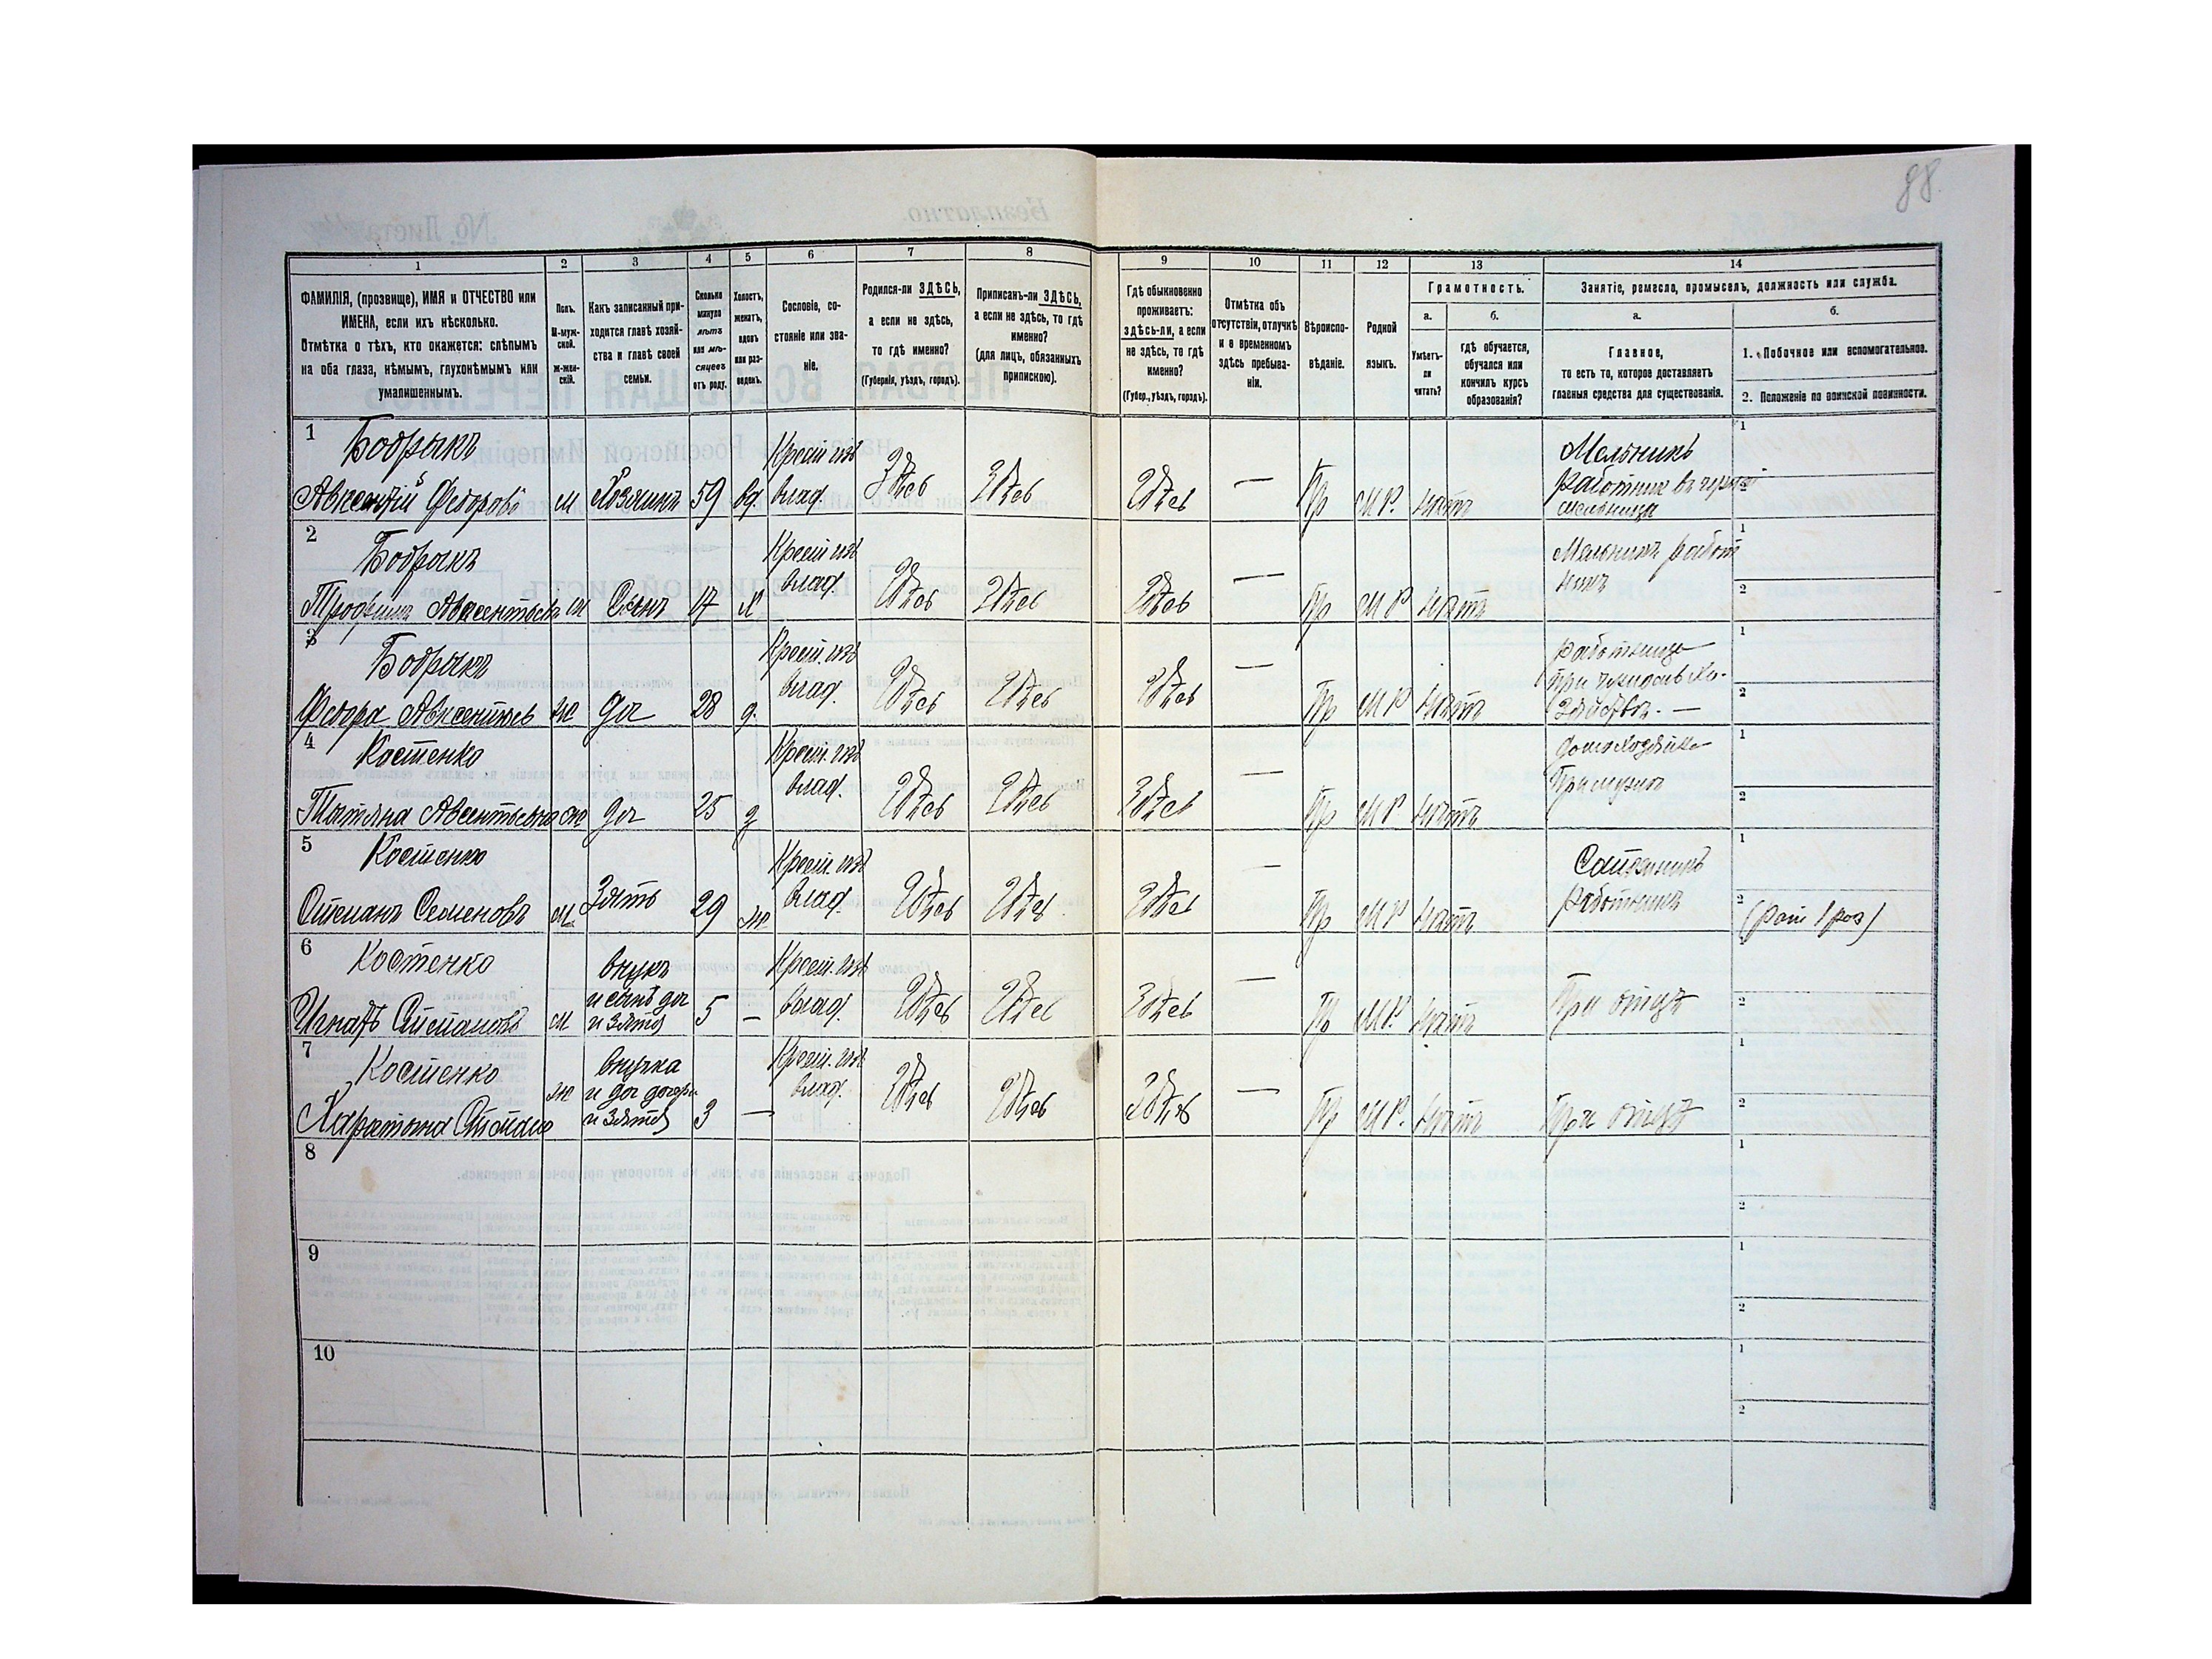 88
1 2 3 4 5 6 7 8 9 10 11 12 13 14
ФАМИЛІЯ, (прозвище), ИМЯ и ОТЧЕСТВО или
ИМЕНА, если ихъ нѣсколько.
Отмѣтка о тѣхъ, кто окажется: слѣпымъ
на оба глаза, нѣмымъ, глухонѣмымъ или
умалишеннымъ.
Полъ.
М-муж-
ской.
ж-жен-
скій.
Какъ записанный при-
ходится главѣ хозяй-
ства и главѣ своей
семьи.
Сколько
минуло
лѣтъ
или мѣ-
сяцевъ
отъ роду.
Холостъ,
женатъ,
вдовъ
или раз-
веденъ.
Сословіе, со-
стояніе или зва-
ніе.
Родился-ли ЗДѢСЬ,
а если не здѣсь,
то гдѣ именно?
(Губернія, уѣздъ, городъ).
Приписанъ-ли ЗДѢСЬ,
а если не здѣсь, то гдѣ
именно?
(для лицъ, обязанныхъ
припискою).
Гдѣ обыкновенно
проживаетъ:
здѣсь-ли, а если
не здѣсь, то гдѣ
именно?
(Губер., уѣздъ, городъ).
Отмѣтка объ
отсутствіи, отлучкѣ
и о временномъ
здѣсь пребыва-
ніи.
Вѣроиспо-
вѣданіе.
Родной
языкъ.
Грамотность.
а.
Умѣетъ-
ли
читать?
б.
гдѣ обучается,
обучался или
кончилъ курсъ
образованія?
Занятіе, ремесло, промыселъ, должность или служба.
а.
Главное,
то есть то, которое доставляетъ
главныя средства для существованія.
б.
1. Побочное или вспомогательное.
2. Положеніе по воинской повинности.
1 Бодрыкъ Крест. изъ Мельникъ 1
Авксентій Федоровъ м Хозяинъ 59 вд. влад. Здѣсь Здѣсь Здѣсь — Пр М.Р. нѣтъ работник въ
мельница
2 Бодрыкъ Крест. изъ Мельникъ работ 1
никъ
Трофимъ Авксентьевъ м Сынъ 17 х влад. Здѣсь Здѣсь Здѣсь — Пр М Р нѣтъ 2
3 Бодрыкъ Крест. изъ работница 1
при хо-
Федора Авксентьев ж доч 28 д. влад. Здѣсь Здѣсь Здѣсь — Пр М Р нѣтъ зяйствѣ. — 2
4 Костенко Крест. изъ домохозяйка 1
Татьяна Авсентьевна ж доч 25 з влад. Здѣсь Здѣсь Здѣсь — Пр М Р нѣтъ при мужѣ 2
5 Костенко Крест. изъ 1
Степанъ Семеновъ м Зять 29 ж влад. Здѣсь Здѣсь Здѣсь — Пр М Р нѣтъ работникъ 2
6 Костенко внукъ Крест. изъ 1
и сынъ доч
Игнатъ Степановъ м и зятя 5 — влад. Здѣсь Здѣсь Здѣсь — Пр М.Р. нѣтъ При отцѣ 2
7 Костенко внучка Крест. изъ 1
ж и доч дочери
и зятя 3 — влад. Здѣсь Здѣсь Здѣсь — Пр М.Р. нѣтъ При отцѣ 2
8 1
2
9 1
2
10 1
2